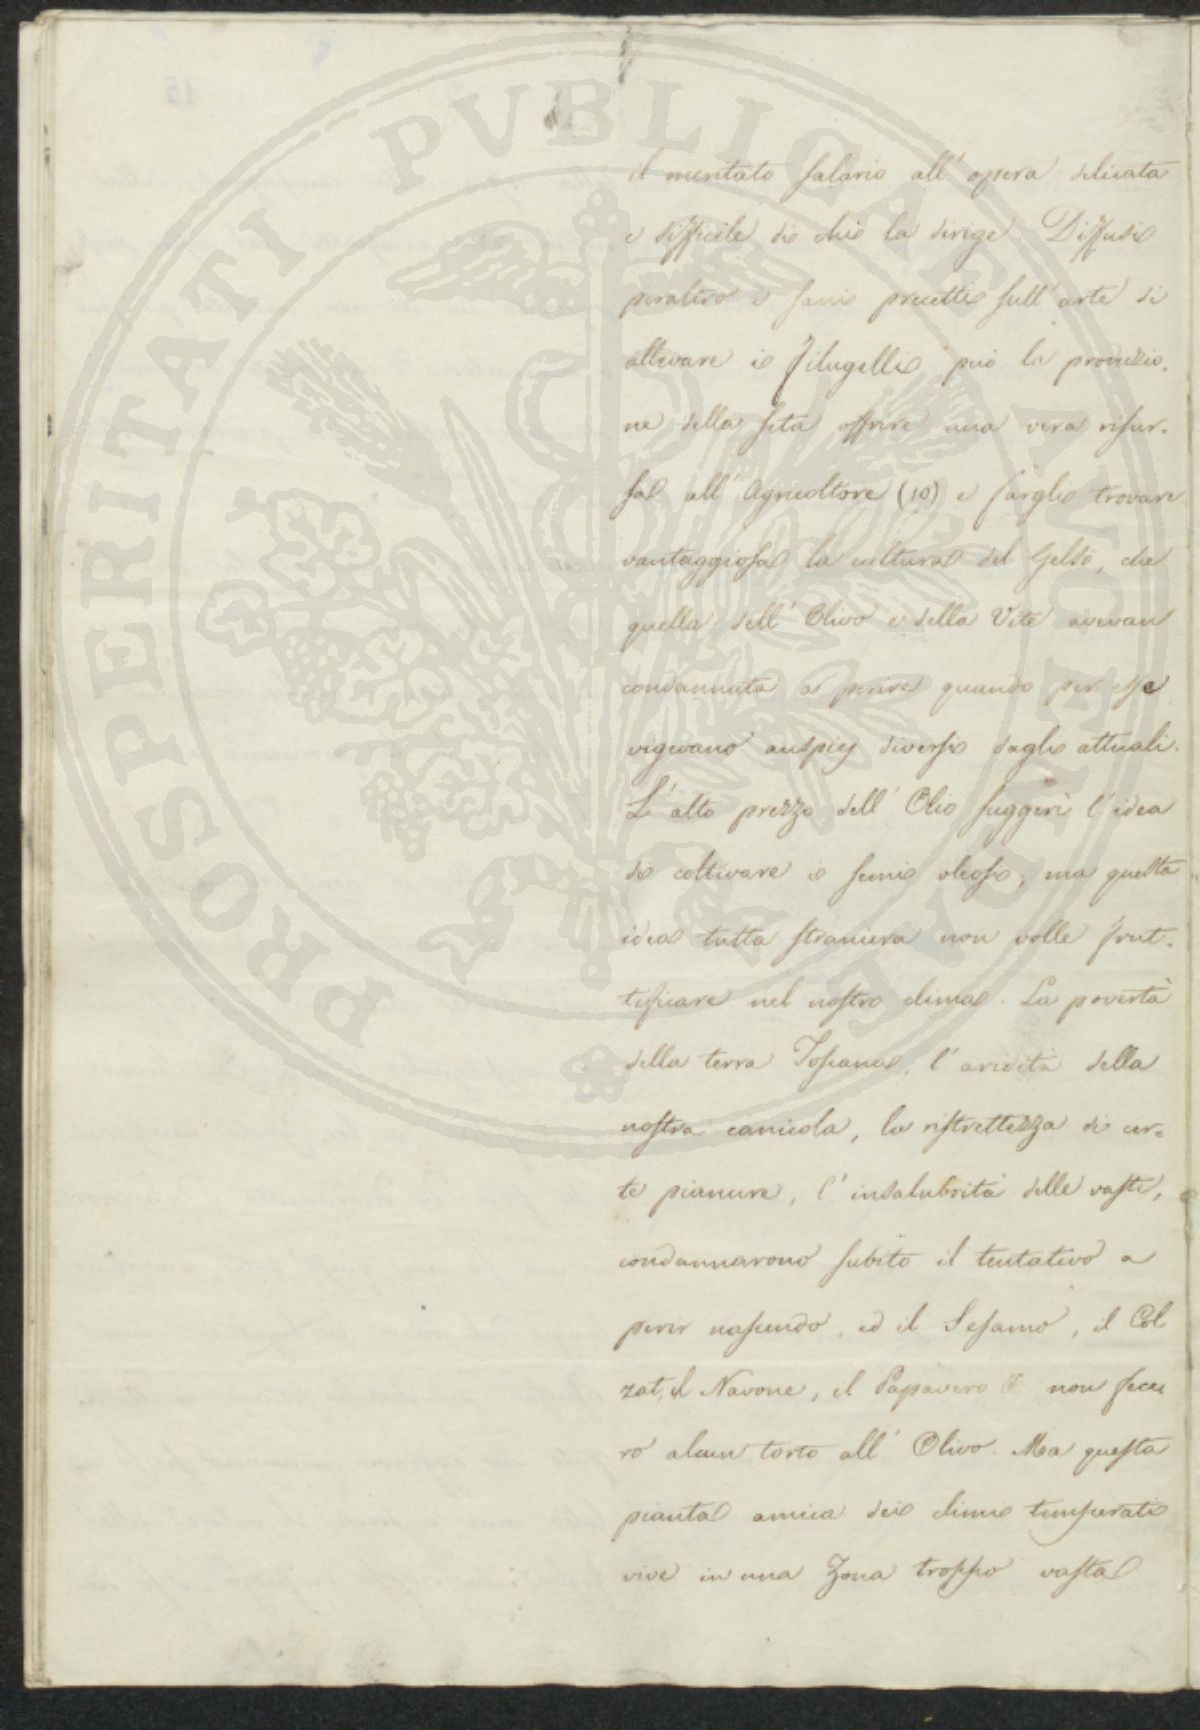 PROSPERITATI PVBLICAE AVGENDAE
il meritato salario all' opera delicata
e difficile di chi la dirige. Diffusi
peraltro i sani precetti sull' arte di
allevare i Filugelli può la produzio-
ne della seta offrire una vera risor-
sa all' Agricoltore (10) e fargli trovare
vantaggiosa la cultura del Gelso, che
quella dell' Olivo e della Vite avevan
condannata a perire quando per esse
vigevano auspicj diversi dagli attuali.
L' alto prezzo dell' Olio suggerì l' idea
di coltivare i semi oleosi; ma questa
idea tutta straniera non volle frut-
tificare nel nostro clima. La povertà
della terra Toscana, l' aridità della
nostra canicola, la ristrettezza di cer-
te pianure, l' insalubrità delle vaste,
condannarono subito il tentativo a
perir nascendo, ed il Sesamo, il Col
zat, il Navone, il Papavero non fece
ro alcun torto all' Olivo. Ma questa
pianta amica dei climi temperati
vive in una Zona troppo vasta